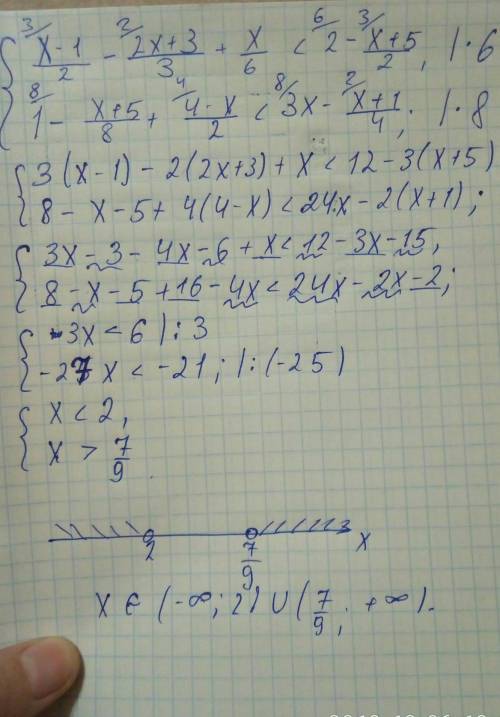 { 3/ (x-1)/2 - 2/ (2x+3)/3 + x/6 < 6/ 2 - 3/ (x+5)/2, | · 6
{ 8/ 1 - (x+5)/8 + 4/ (4-x)/2 < 8/ 3x - 2/ (x+1)/4; | · 8
{ 3(x-1) - 2(2x+3) + x < 12 - 3(x+5)
{ 8 - x - 5 + 4(4-x) < 24x - 2(x+1);
{ 3x - 3 - 4x - 6 + x < 12 - 3x - 15,
{ 8 - x - 5 + 16 - 4x < 24x - 2x - 2;
{ 3x < 6 | : 3
{ -27x < -21; | : (-25)
{ x < 2,
{ x > 7/9
2 7/9 x
x ∈ (-∞; 2) ∪ (7/9; +∞).